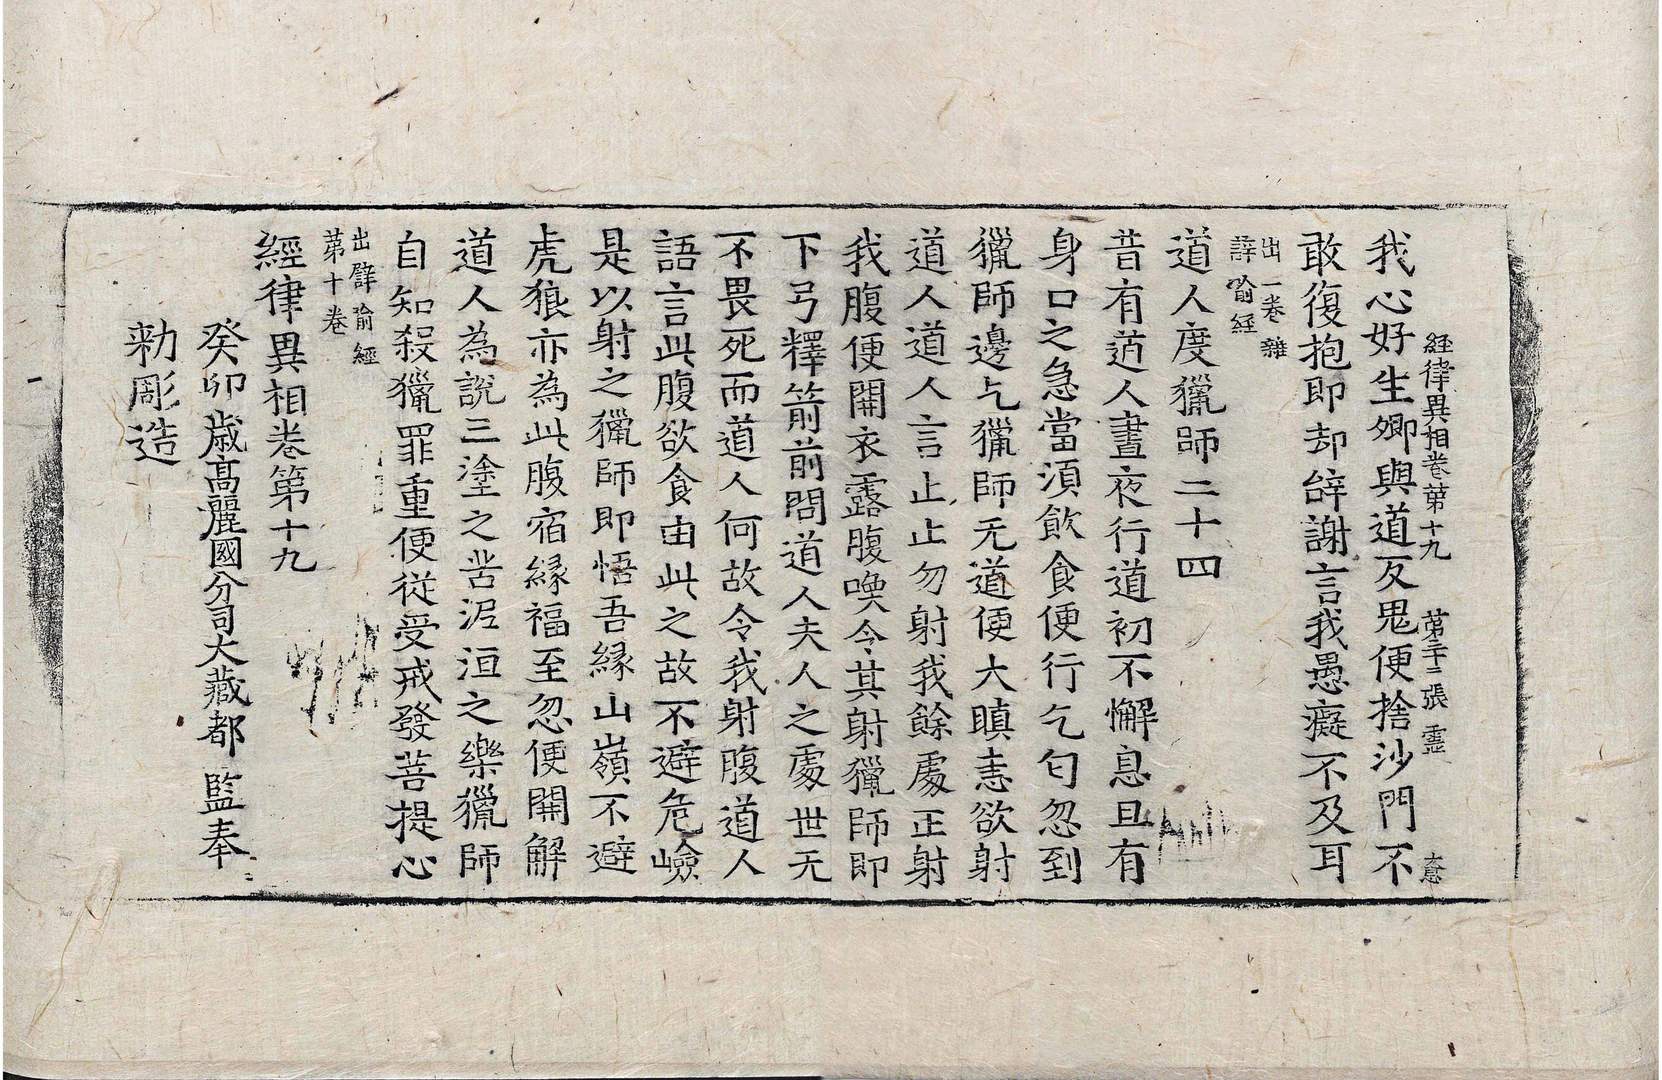 経律異相卷苐十九 苐三十二張 靈
我心好生卿與道反鬼便捨沙門不
敢復抱即却辝謝言我愚癡不及耳
出一卷雜
譬喻経
道人度獵師二十四
昔有道人晝夜行道初不懈息且有
身口之急當湏飲食便行乞匂忽到
獵師邊乞獵師无道便大瞋恚欲射
道人道人言止止勿射我餘處正射
我腹便開衣露腹喚令其射獵師即
下弓釋箭前問道人夫人之處世无
不畏死而道人何故令我射腹道人
語言此腹欲食由此之故不避危嶮
是以射之獵師即悟吾縁山嶺不避
虎狼亦為此腹宿縁福至忽便開解
道人為說三塗之苦泥洹之樂獵師
自知殺獵罪重便從受戒發菩提心
出譬喻經
苐十卷
經律異相卷第十九
癸卯歲髙麗國分司大藏都監奉
勑彫造